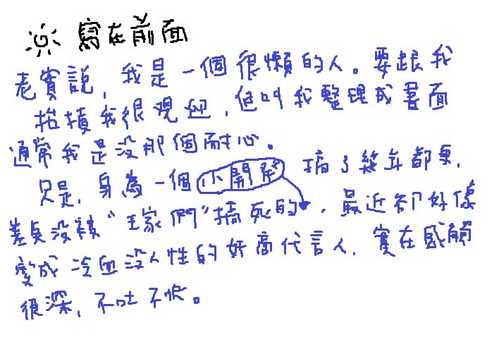 寫在前面
老實說，我是一個很懶的人。要跟我
抬槓我很歡迎，但叫我整理成書面
通常我是沒那個耐心。
只是，身為一個小開發 搞了幾年都更，
差點沒被“王家們”搞死的，最近卻好像
變成冷血沒人性的奸商代言人，實在感觸
很深，不吐不快。